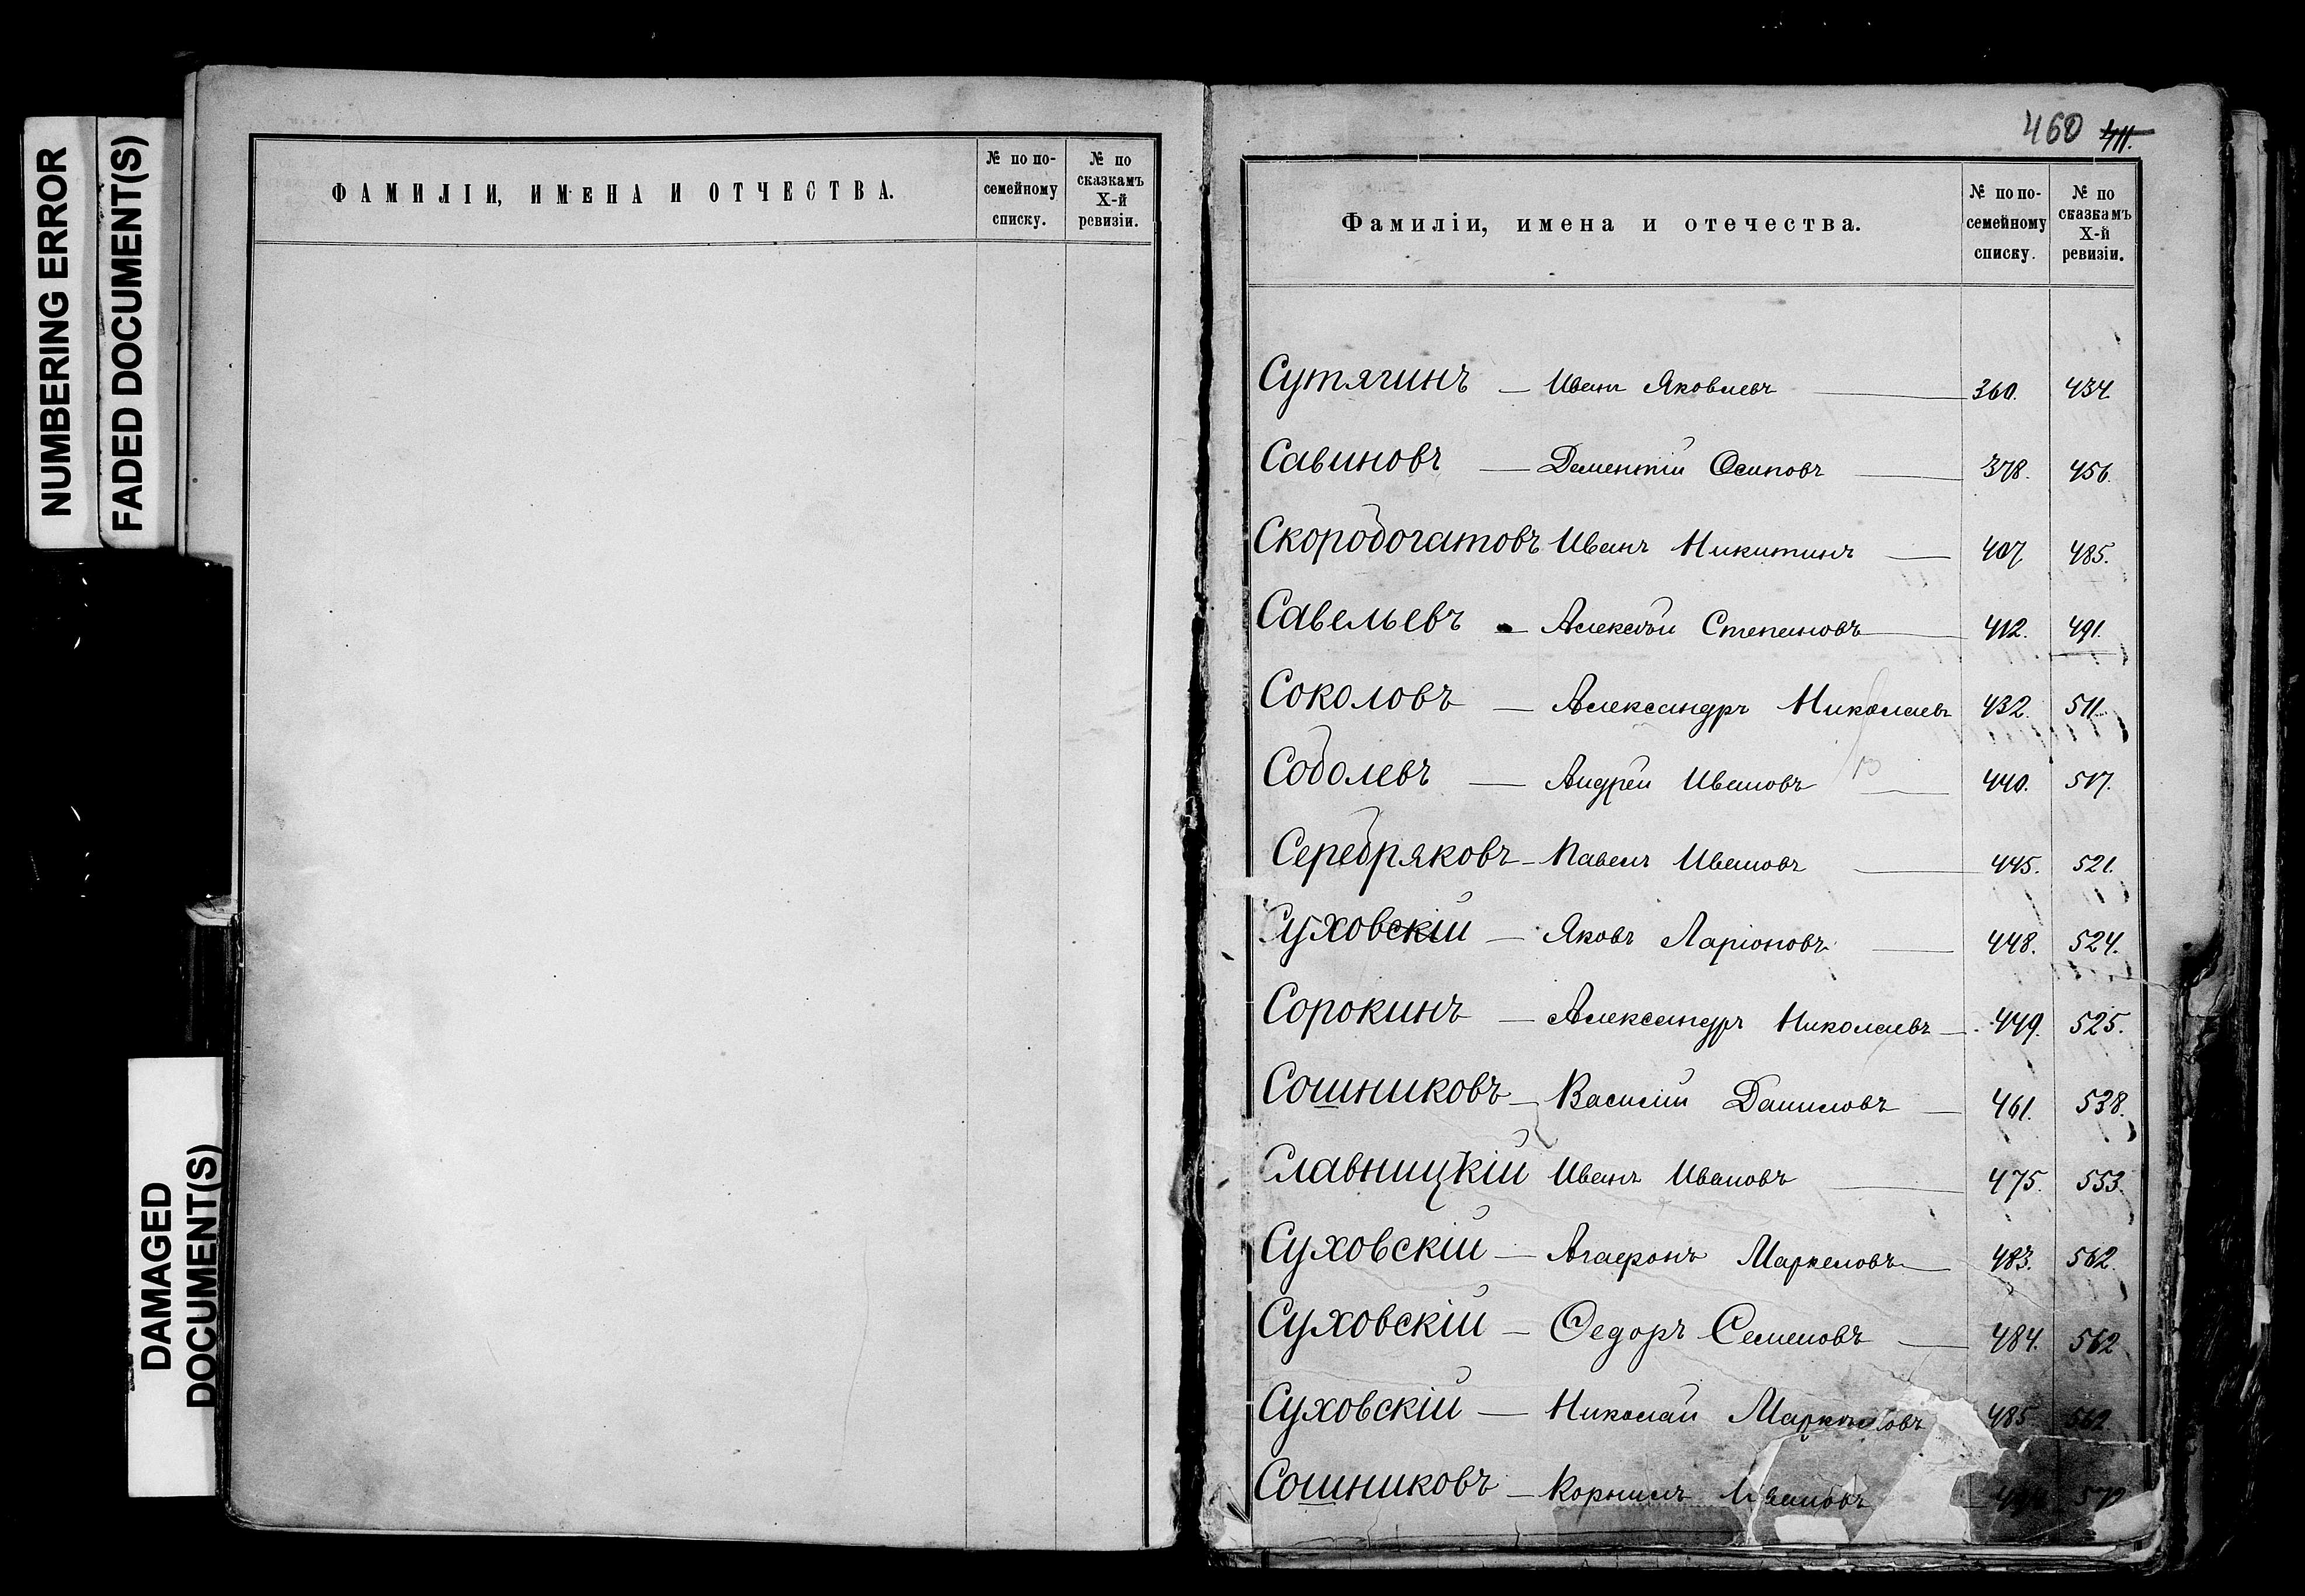 NUMBERING ERROR
FADED DOCUMENT(S)
DAMAGED
DOCUMENT(S)
ФАМИЛІИ, ИМЕНА И ОТЧЕСТВА.
№ по по-
семейному
списку.
№ по
сказкамъ
X-й
ревизіи.
460 411.
Фамиліи, имена и отечества.
№ по по-
семейному
списку.
№ по
сказкамъ
X-й
ревизіи.
Сутягинъ — Иванъ Яковлевъ — 360. 434.
Савиновъ — Дементій Осиповъ — 378. 456.
Скоробогатовъ Иванъ Никитинъ — 407 485.
Савельевъ — Алексѣй Степановъ — 412. 491.
Соколовъ — Александръ Николаевъ 432. 511.
Соболевъ — Андрей Ивановъ — 440. 517.
Серебряковъ — Павелъ Ивановъ — 445. 521.
Суховскій — Яковъ Ларіоновъ — 448. 524.
Сорокинъ — Александръ Николаевъ — 449. 525.
Сошниковъ — Василій Даниловъ — 461. 538.
Славницкій Иванъ Ивановъ — 475. 553.
Суховскій — Агафонъ Маркеловъ — 483. 562.
Суховскій — Ѳедоръ Семеновъ — 484. 562
Суховскій — Николай Маркеловъ 485. 562
Сошниковъ — Корнилъ Ивановъ